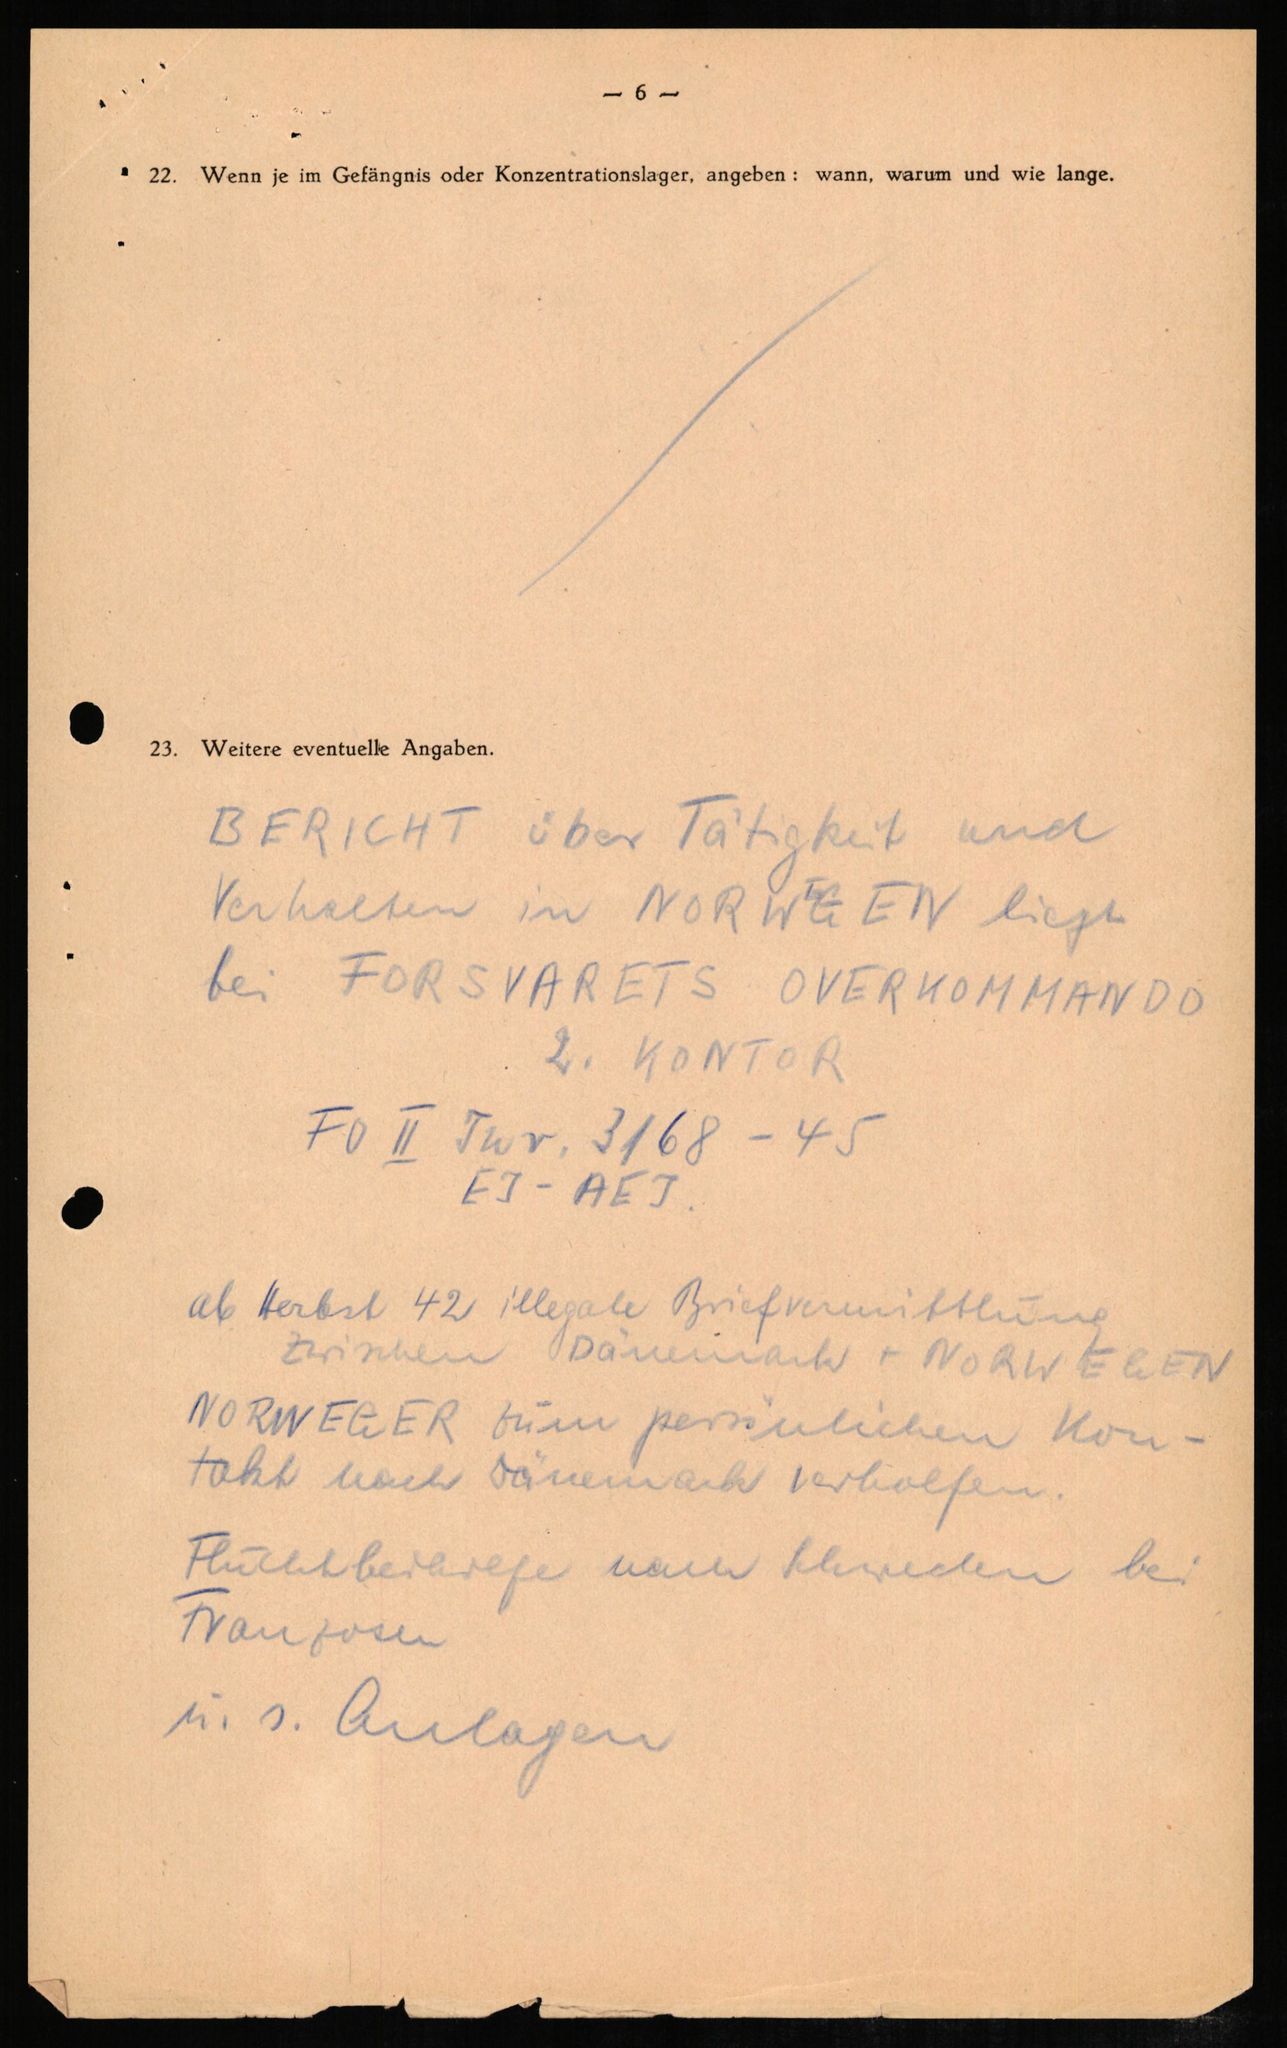 — 6 —
22. Wenn je im Gefängnis oder Konzentrationslager, angeben: wann, warum und wie lange.
23. Weitere eventuelle Angaben.
BERICHT über Tätigkeit und
Verhalten in NORWEGEN liegt
bei FORSVARETS OVERKOMMANDO
2. KONTOR
FO II Jnr. 3168 - 45
EJ - AEJ.
ab Herbst 42 illegale Briefvermittlung
zwischen Dänemark + NORWEGEN
NORWEGER zum persönlichen Kon-
takt nach Dänemark verholfen.
Fluchtbeihilfe nach Schweden bei
Franzosen
u. s. Anlagen